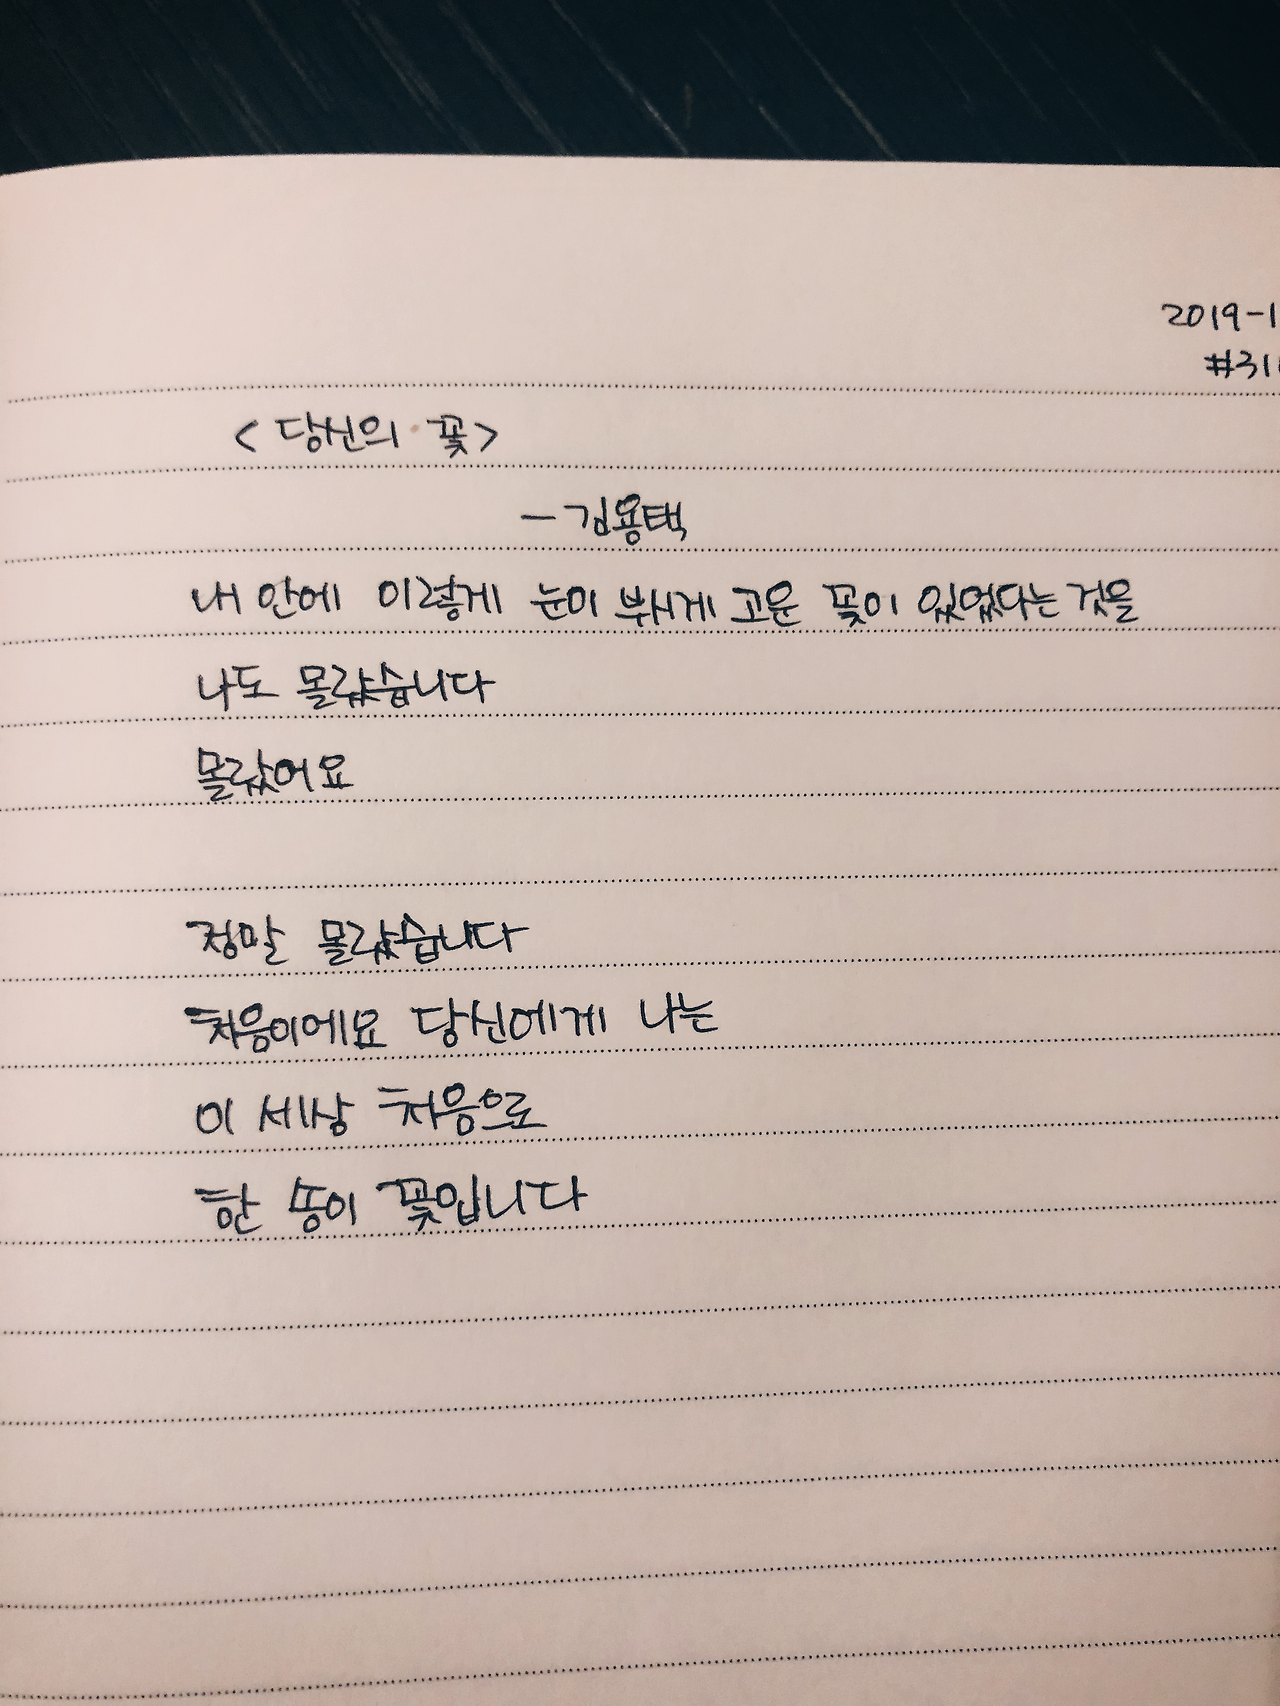 2019-1
#31
<당신의 꽃>
- 김용택
내 안에 이렇게 눈이 부시게 고운 꽃이 있었다는 것을
나도 몰랐습니다
몰랐어요
정말 몰랐습니다
처음이에요 당신에게 나는
이 세상 처음으로
한 송이 꽃입니다